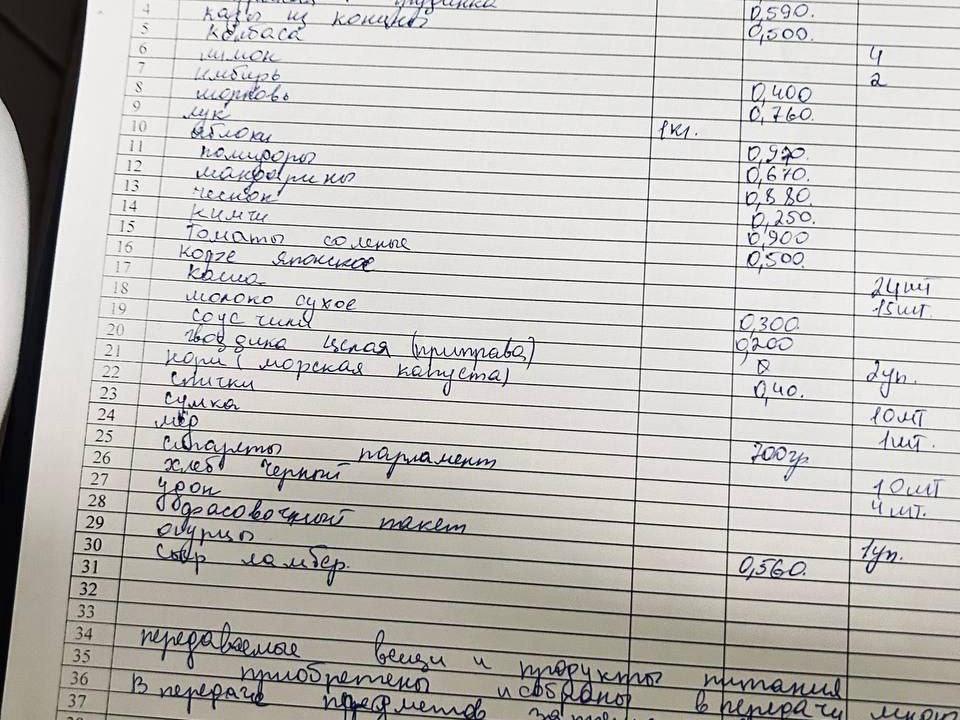 4 казы из конины 0,500.
5 колбаса 4
6 лимон 2
7 имбирь 0,400
8 морковь 0,760.
9 лук 1кг.
10 яблоки 0,970.
11 помидоры 0,670.
12 мандарины 0,880.
13 чеснок 0,250.
14 кимчи 0,900
15 томаты соленые 0,500.
16 кофе японское 24шт
17 каша 15шт.
18 молоко сухое 0,300.
19 соус чили 0,200
20 гвоздика целая (приправа) 2уп.
21 нори (морская капуста) 0,40.
22 спички 10шт
23 сумка 1шт.
24 мёд 700гр
25 сигареты парламент 10шт
26 хлеб черный 4шт.
27 удон
28 фасовочный пакет 1уп.
29 огурцы 0,560.
30 сыр ламбер.
31
32
33
34 передаваемые вещи и продукты питания
35 приобретены и собраны в передачу мною
36 В передаче предметов
37